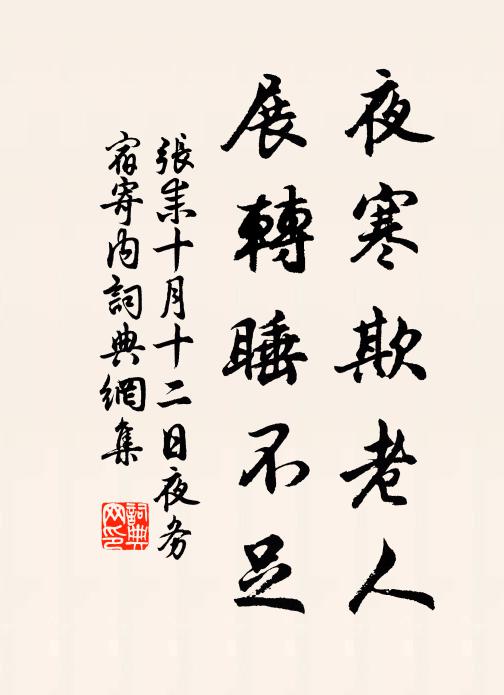 夜寒欺老人
展轉睡不足
張耒十月十二日夜务
宿寄内詞典網集
詞典网印